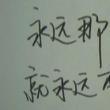 永远那
就永远